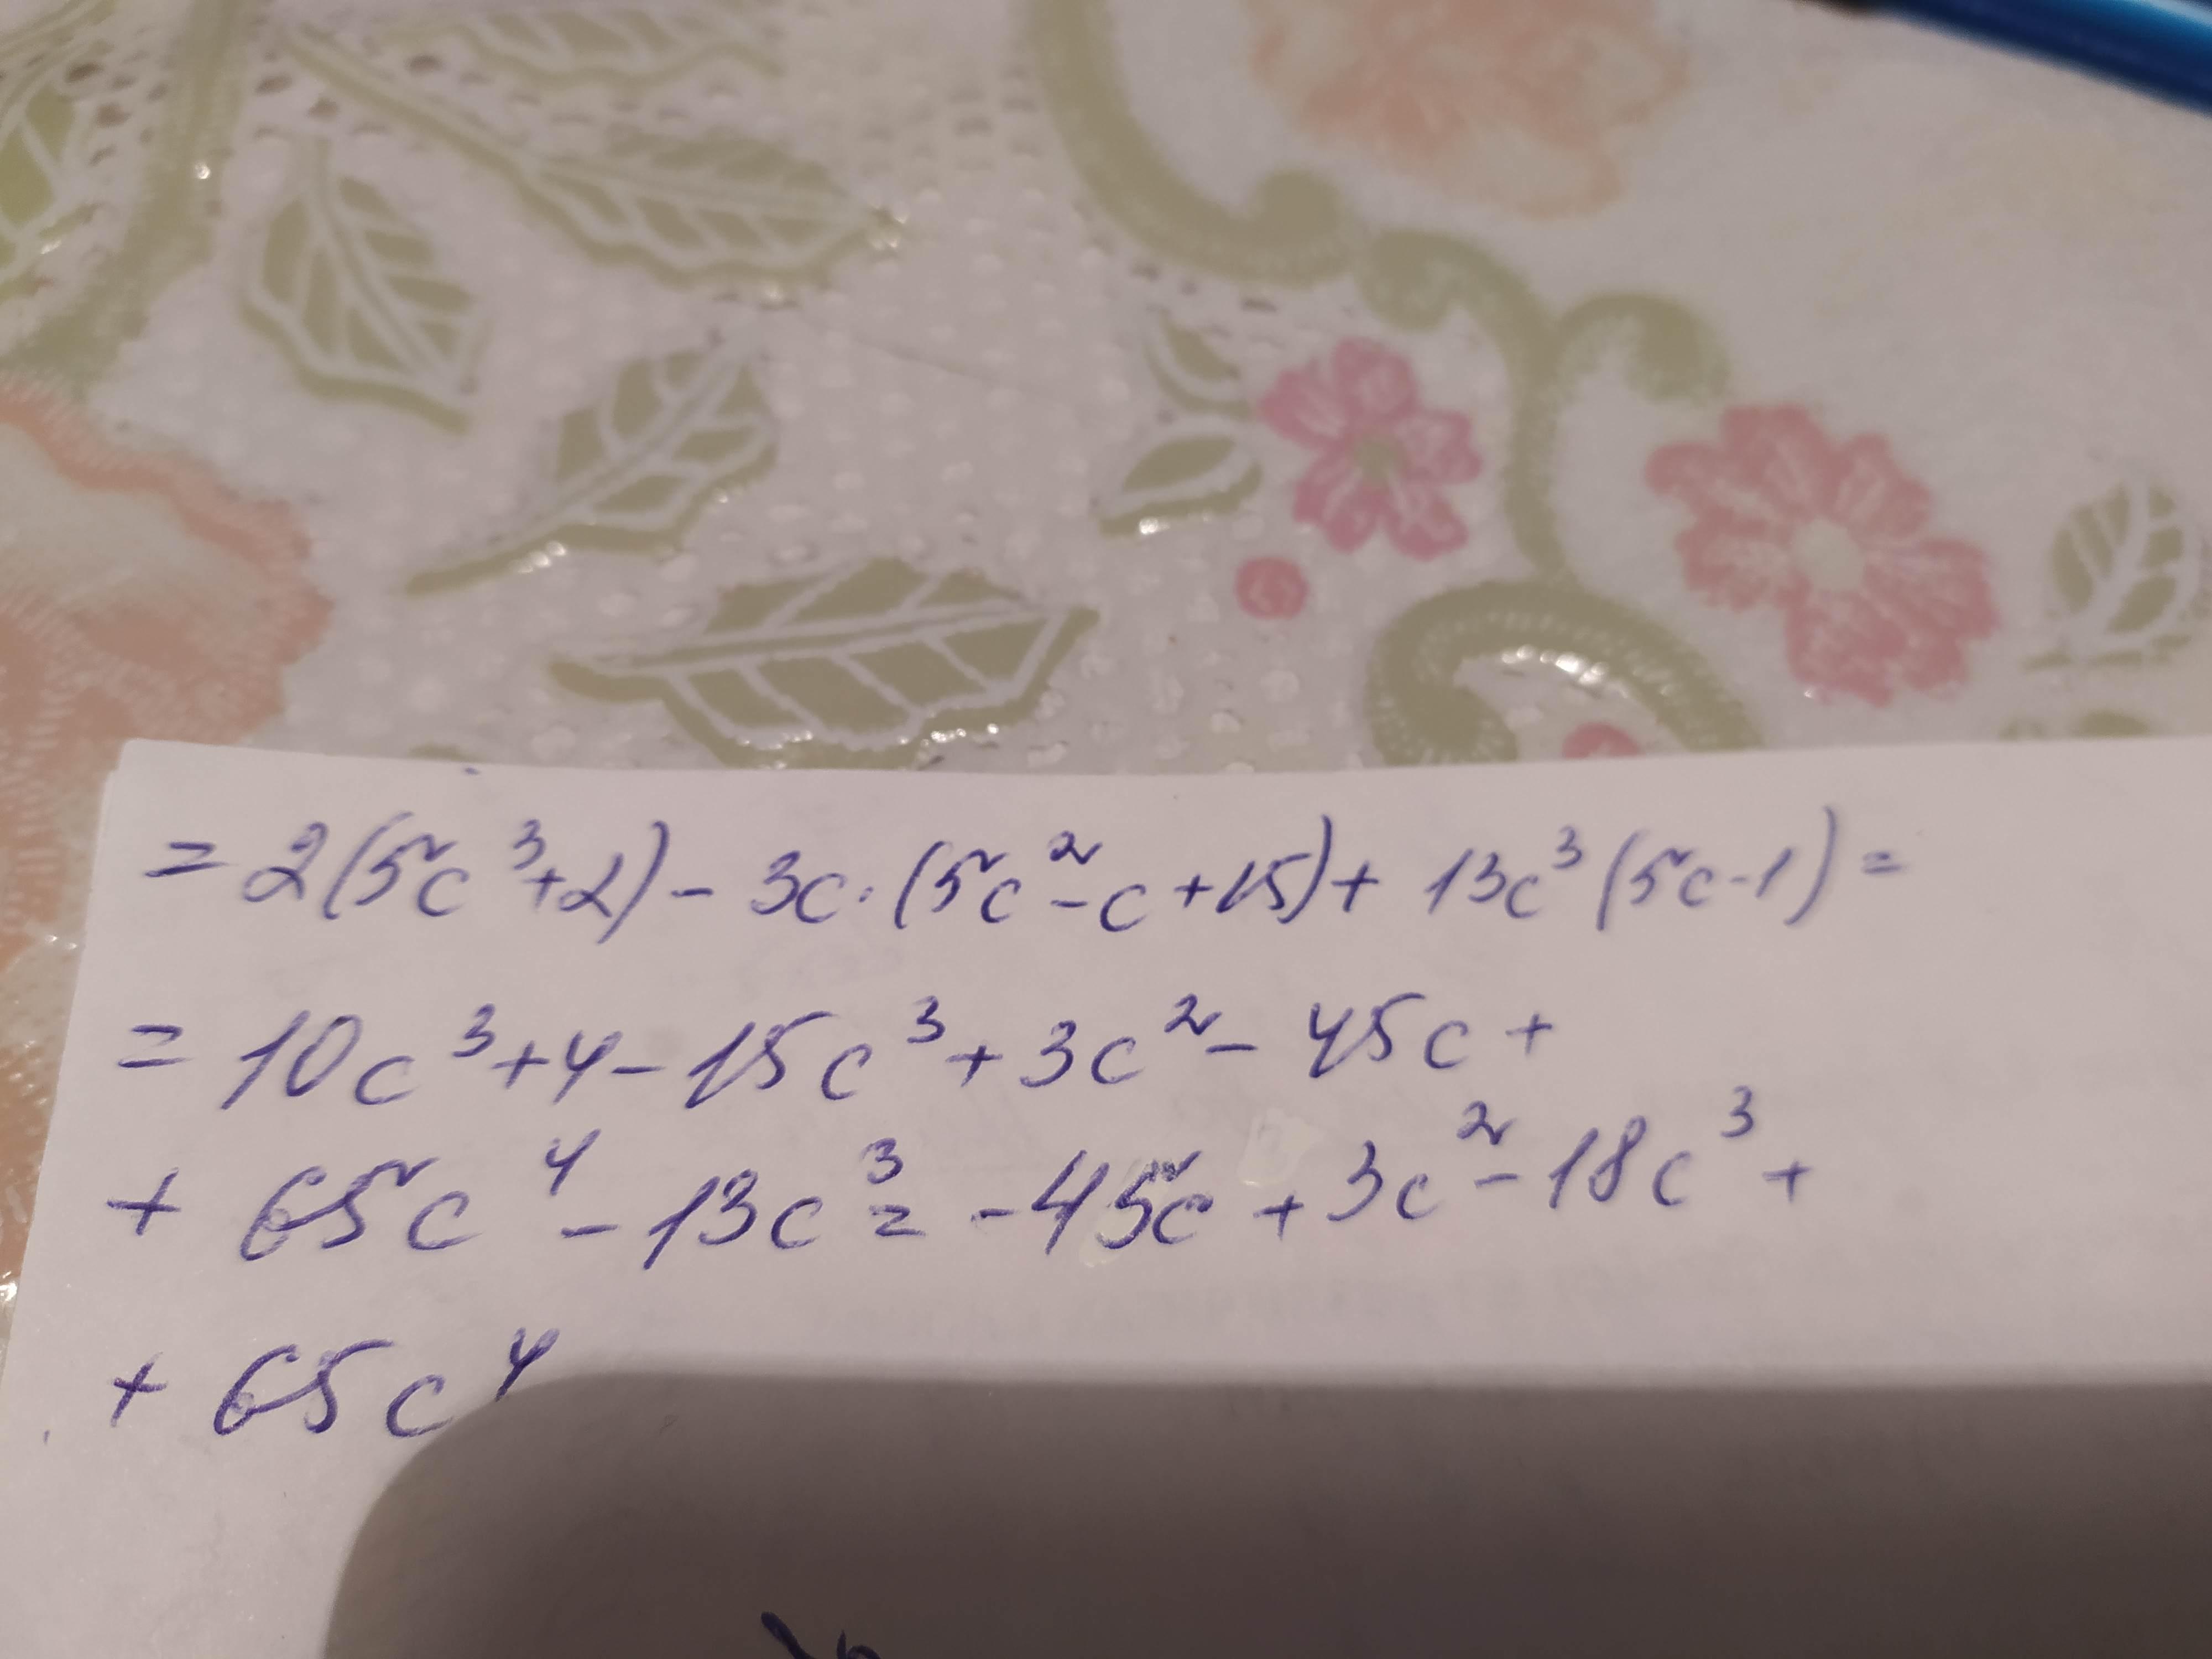 = 2(5c³+2) - 3c·(5c²-c+15) + 13c³(5c-1) =
= 10c³+4-15c³+3c²-45c+
+ 65c⁴-13c³ = -45c+3c²-18c³+
+ 65c⁴